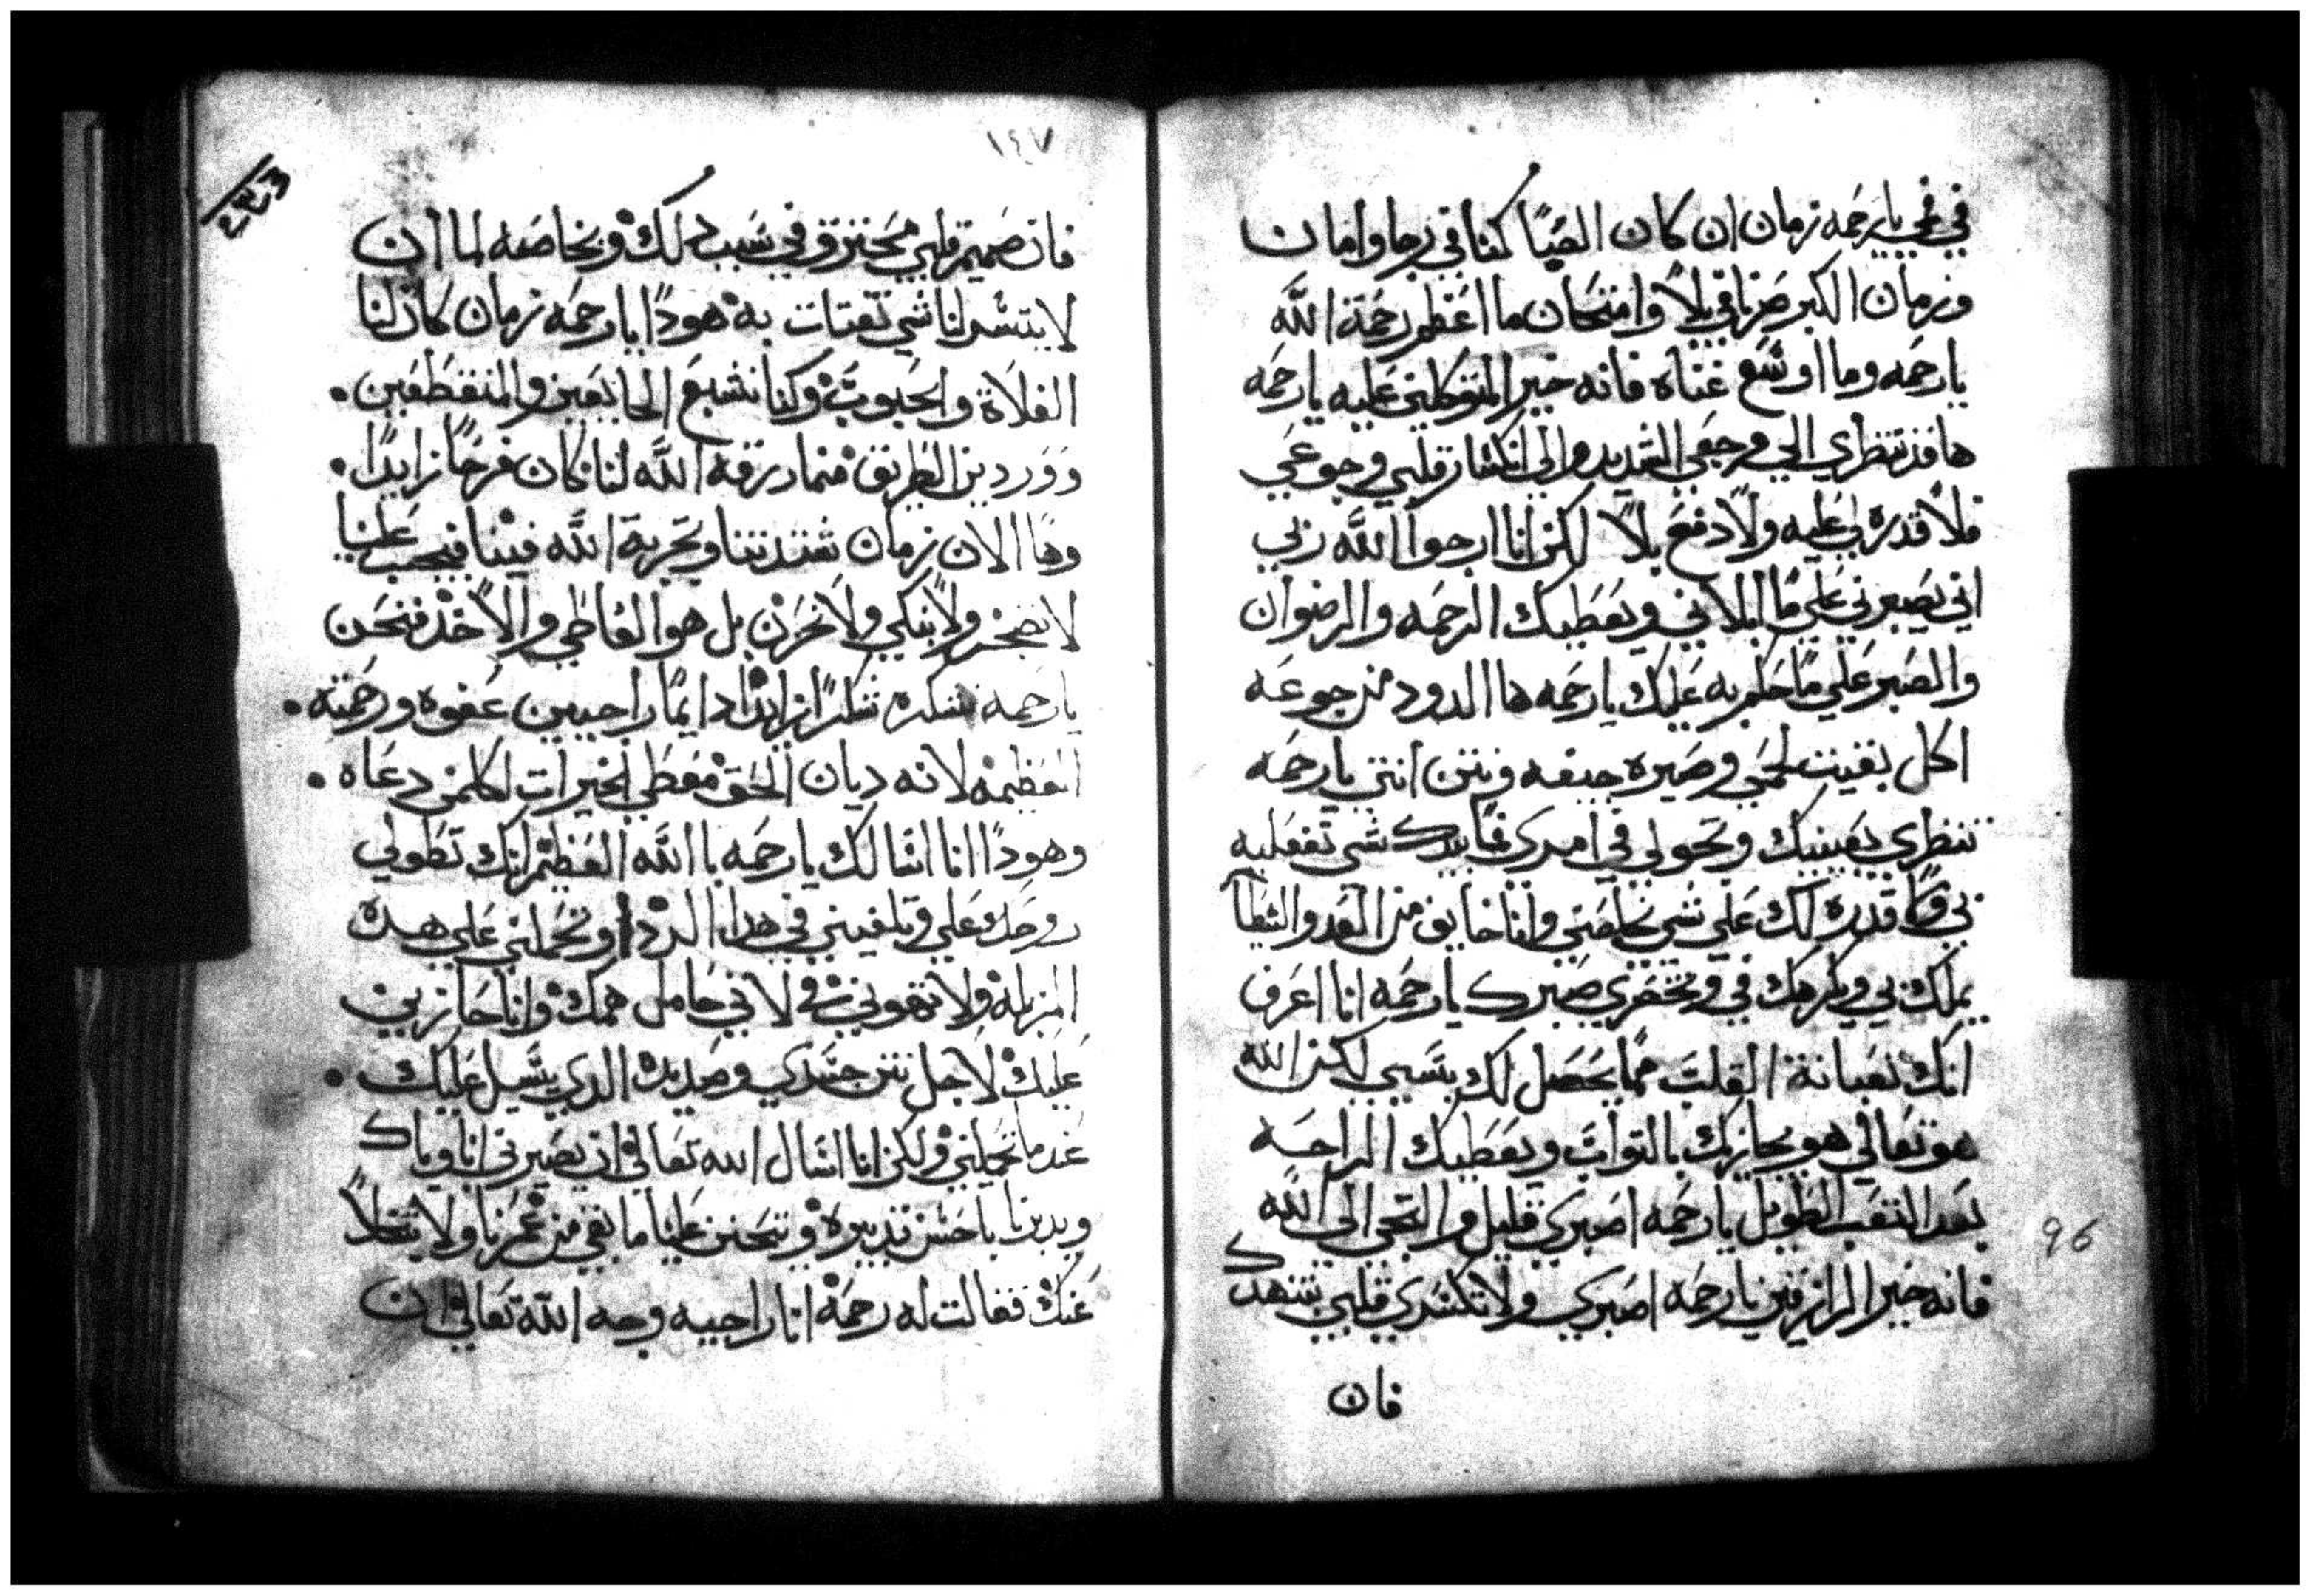 في فمي يا رحمه زمان ان كان الصبا كنا في رجا وامان
وزمان الكبر صرنا في بلاً وامتحان ما اعظم رحمة الله
يا رحمه وما اوسع غناه فانه خير المتوكلين عليه يا رحمه
ها قد تنظري الي وجعي الشديد والي انكسار قلبي وجوعي
فلا قدره لي عليه ولا دفع بلاً لكن انا ارجوا الله ربي
اني يصبرني علي ما ابلاني ويعطيك الرحمه والرضوان
والصبر علي ما حكم به عليك يا رحمه ها الدود من جوعه
اكل بقيت لحمي وصيره جيفه ونتن انتي يا رحمه
تنظري بعينيك وتحولي في امرك فما بيدك شي تفعليه
بي ولا قدره لك علي شي تخلصني وانا خايف من العدو الشيطا
يملك بي ويكرهك في وتخسري صبرك يا رحمه انا اعرف
انك تعبانة القلب مما يحصل لك بسببي لكن الله
هو تعالي هو يجازيك بالثواب ويعطيك الراحه
بعد التعب الطويل يا رحمه اصبري قليل والتجي الي الله
فانه خير الرازقين يا رحمه اصبري ولا تكسري قلبي بتنهدك
فان
96
١٤٧
فان صميم قلبي محترق في سبب دلك وبخاصه لما ان
لا يتسر لنا شي تقتات به هودا يا رحمه زمان كان لنا
الغلاة والحبوب وكنا نشبع الجايعين والمنقطعين •
ووردين الطريق مما رزقه الله لنا كان فرحاً زايداً •
وها الان زمان شدتنا وتجربة الله فينا فيجب علينا
لا نضجر ولا نبكي ولا نحزن بل هو العاطي والاخد فنحن
يا رحمه نشكره شكراً زايداً دايماً راجيين عفوه ورحمته •
العظيمه لانه ديان الحق معطي الخيرات لكلمن دعاه •
وهودا انا اسالك يا رحمه با الله العظيم انك تطولي
روحك علي وتلفيني في هدا الردا وتحمليني علي هده
المزبله ولا تهوني في لاني حامل همك وانا حازين
عليك لاجل نتن جسدي وصديده الدي يسيل عليك •
عندما تحمليني ولكن انا اسال الله تعالي ان يصبرني انا وياك
ويدبرنا باحسن تدبيره ويتحنن علينا ما بقي من عمرنا ولا يتخلاً
عنك فقالت له رحمة انا راجيه وجه الله تعالي ان